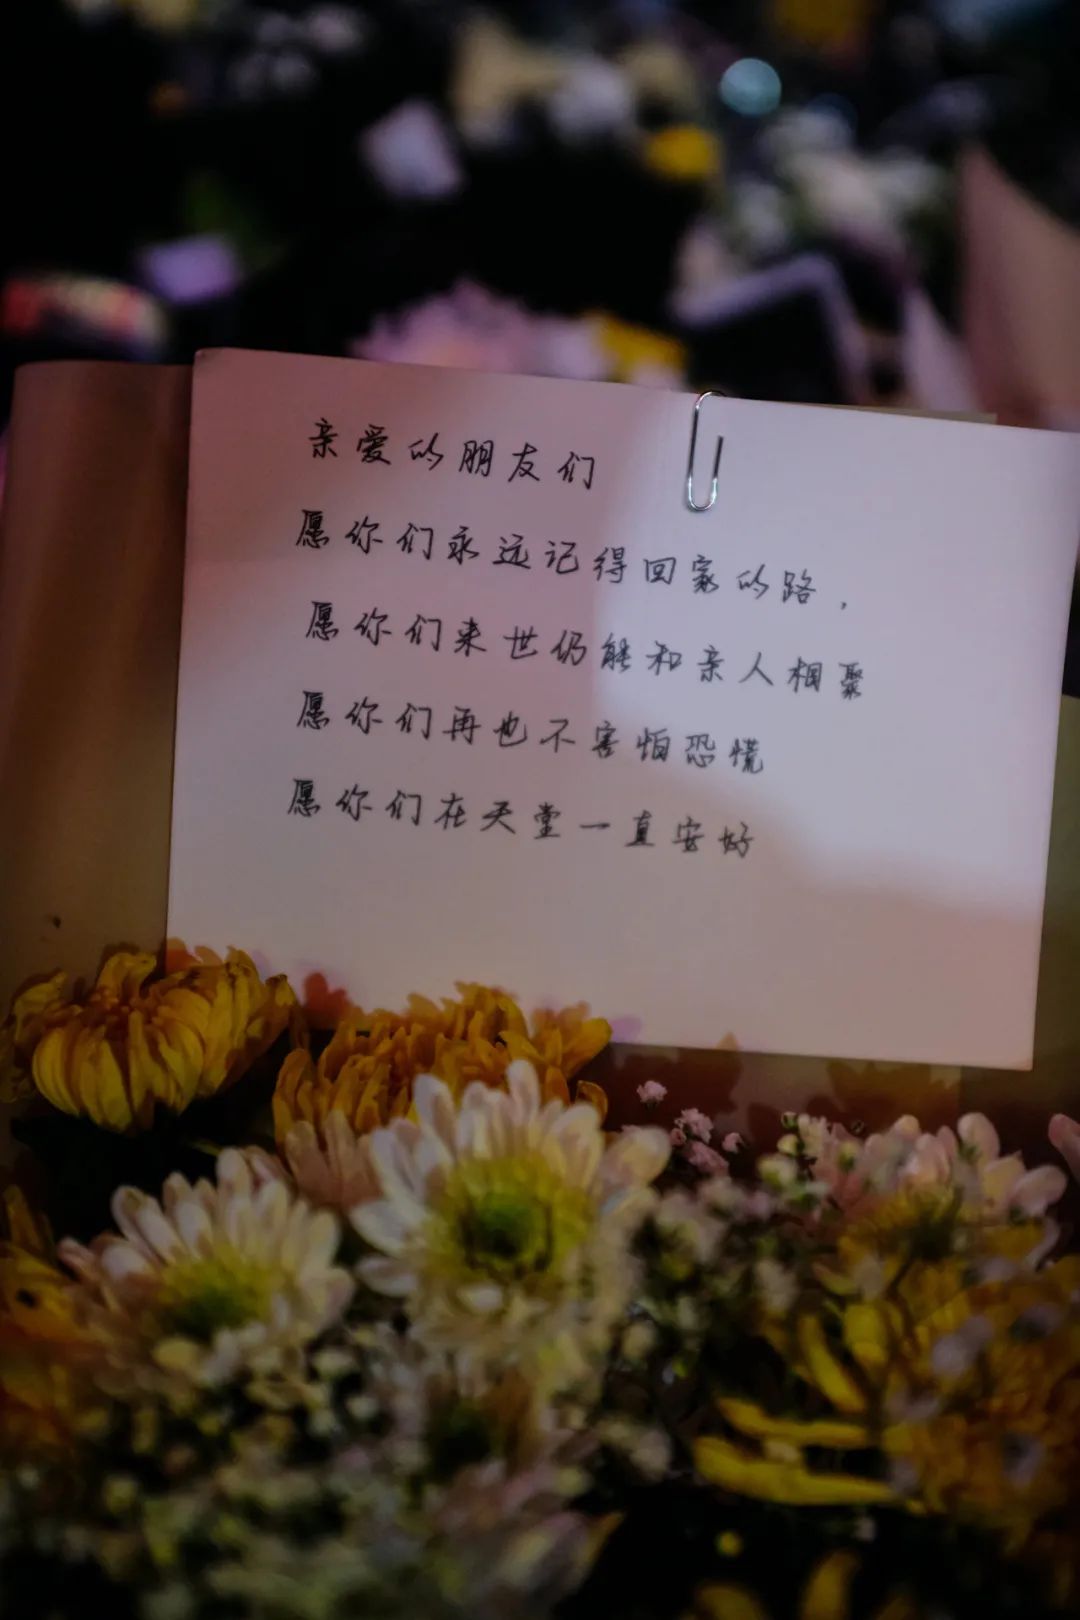 亲爱的朋友们
愿你们永远记得回家的路，
愿你们来世仍能和亲人相聚
愿你们再也不害怕恐慌
愿你们在天堂一直安好